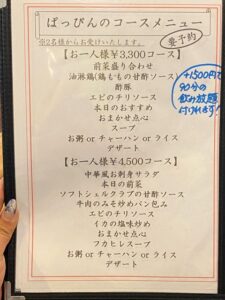 ぱっぴんのコースメニュー
※2名様からお受けいたします。
要予約
【お一人様￥3,300コース】
前菜盛り合わせ
油淋鶏(鶏ももの甘酢ソース)
酢豚
エビのチリソース
本日のおすすめ
おまかせ点心
スープ
お粥 or チャーハン or ライス
デザート
+1500円で
90分の
飲み放題
付けれます!
【お一人様￥4,500コース】
中華風お刺身サラダ
本日の前菜
ソフトシェルクラブの甘酢ソース
牛肉のみそ炒めパン包み
エビのチリソース
イカの塩味炒め
おまかせ点心
フカヒレスープ
お粥 or チャーハン or ライス
デザート